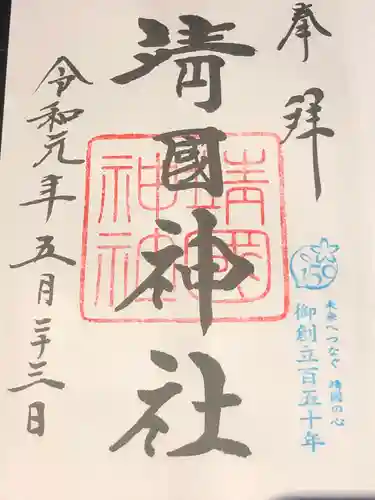 奉拝
靖國神社
靖國神社
150
未来へつなぐ 靖國の心
御創立百五十年
令和元年五月二十三日